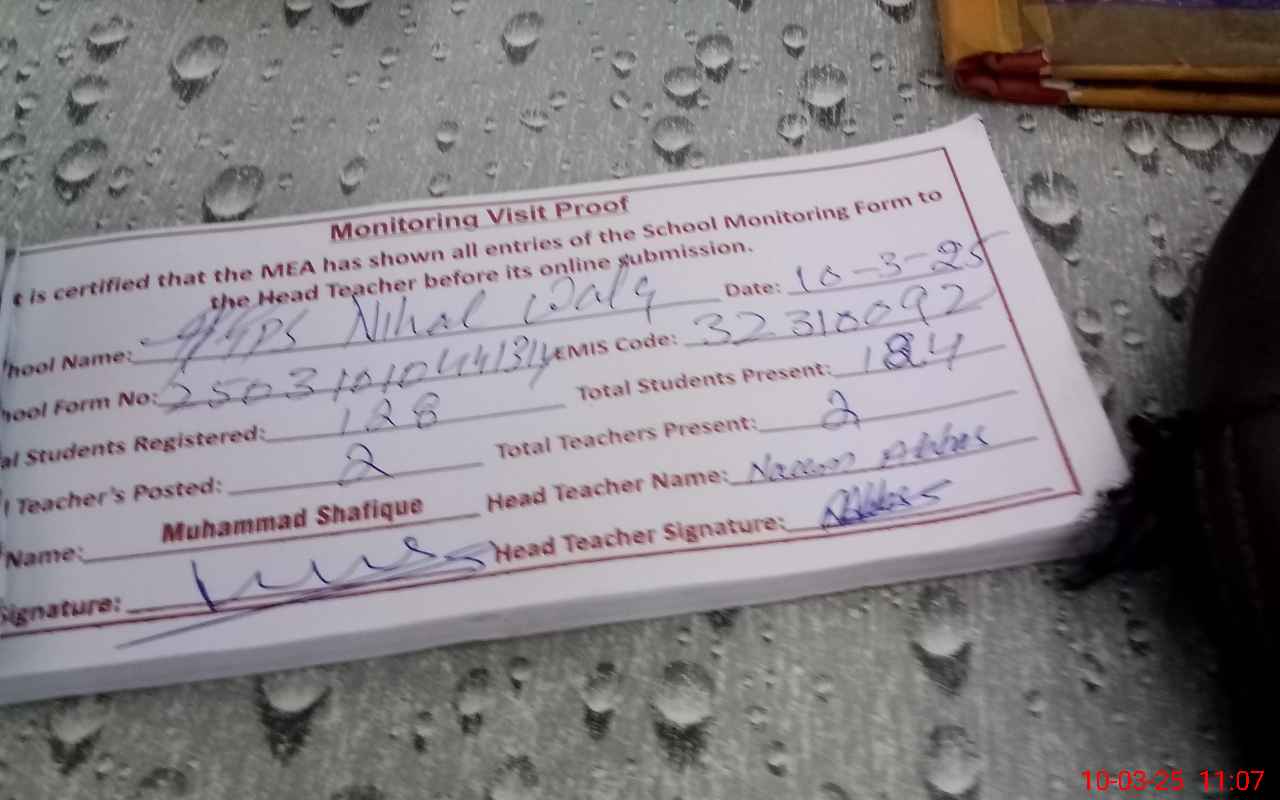 Monitoring Visit Proof
t is certified that the MEA has shown all entries of the School Monitoring Form to
the Head Teacher before its online submission.
hool Name: Nihal Wala Date: 10-3-25
hool Form No: EMIS Code: 32310092
al Students Registered: 128 Total Students Present: 184
l Teacher's Posted: 2 Total Teachers Present: 2
Name: Muhammad Shafique Head Teacher Name: Naeem Abbas
Signature: Head Teacher Signature: Abbas
10-03-25 11:07